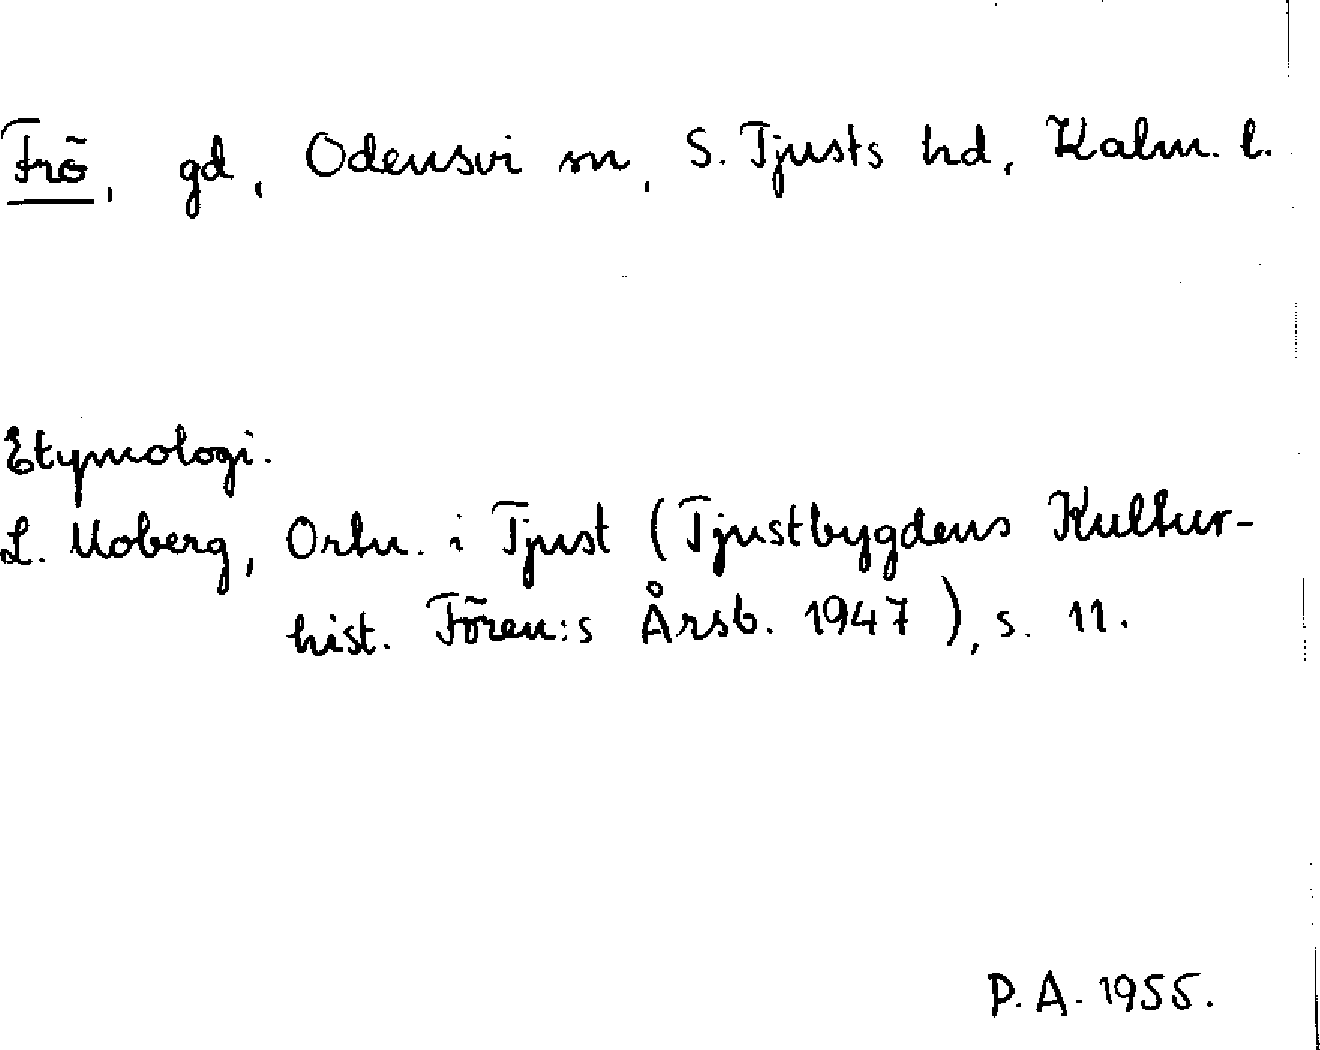 Frö, gd, Odensvi sn, S. Tjusts hd, Kalm. l.
Etymologi.
L. Moberg, Ortn. i Tjust (Tjustbygdens Kultur-
hist. Fören:s Årsb. 1947), s. 11.
P. A. 1955.